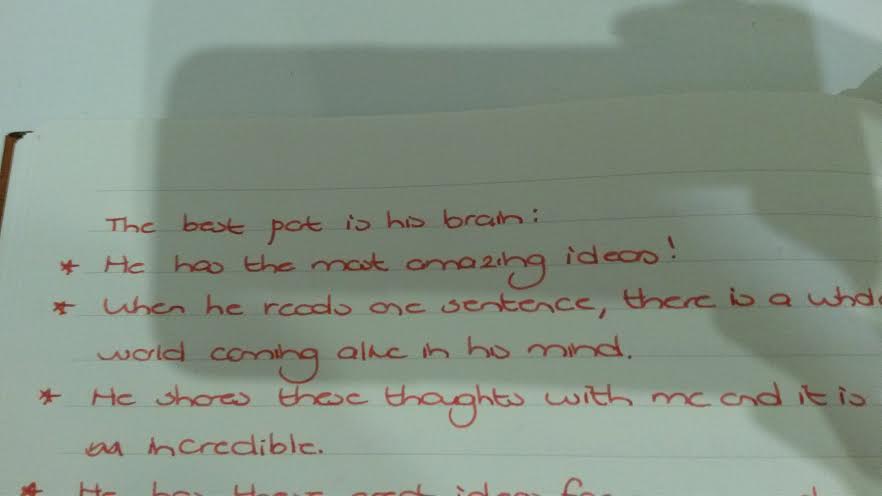 The best pat is his brain:
* He has the most amazing ideas!
* When he reads one sentence, there is a whole
world coming alive in his mind.
* He shares these thoughts with me and it is
incredible.
* He has these great ideas for